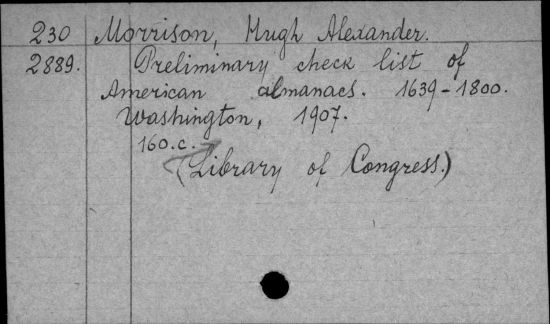 230 Morrison, Hugh Alexander.
2889. Preliminary check list of
American almanacs. 1639-1800.
Washington, 1907.
160.c.
(Library of Congress.)